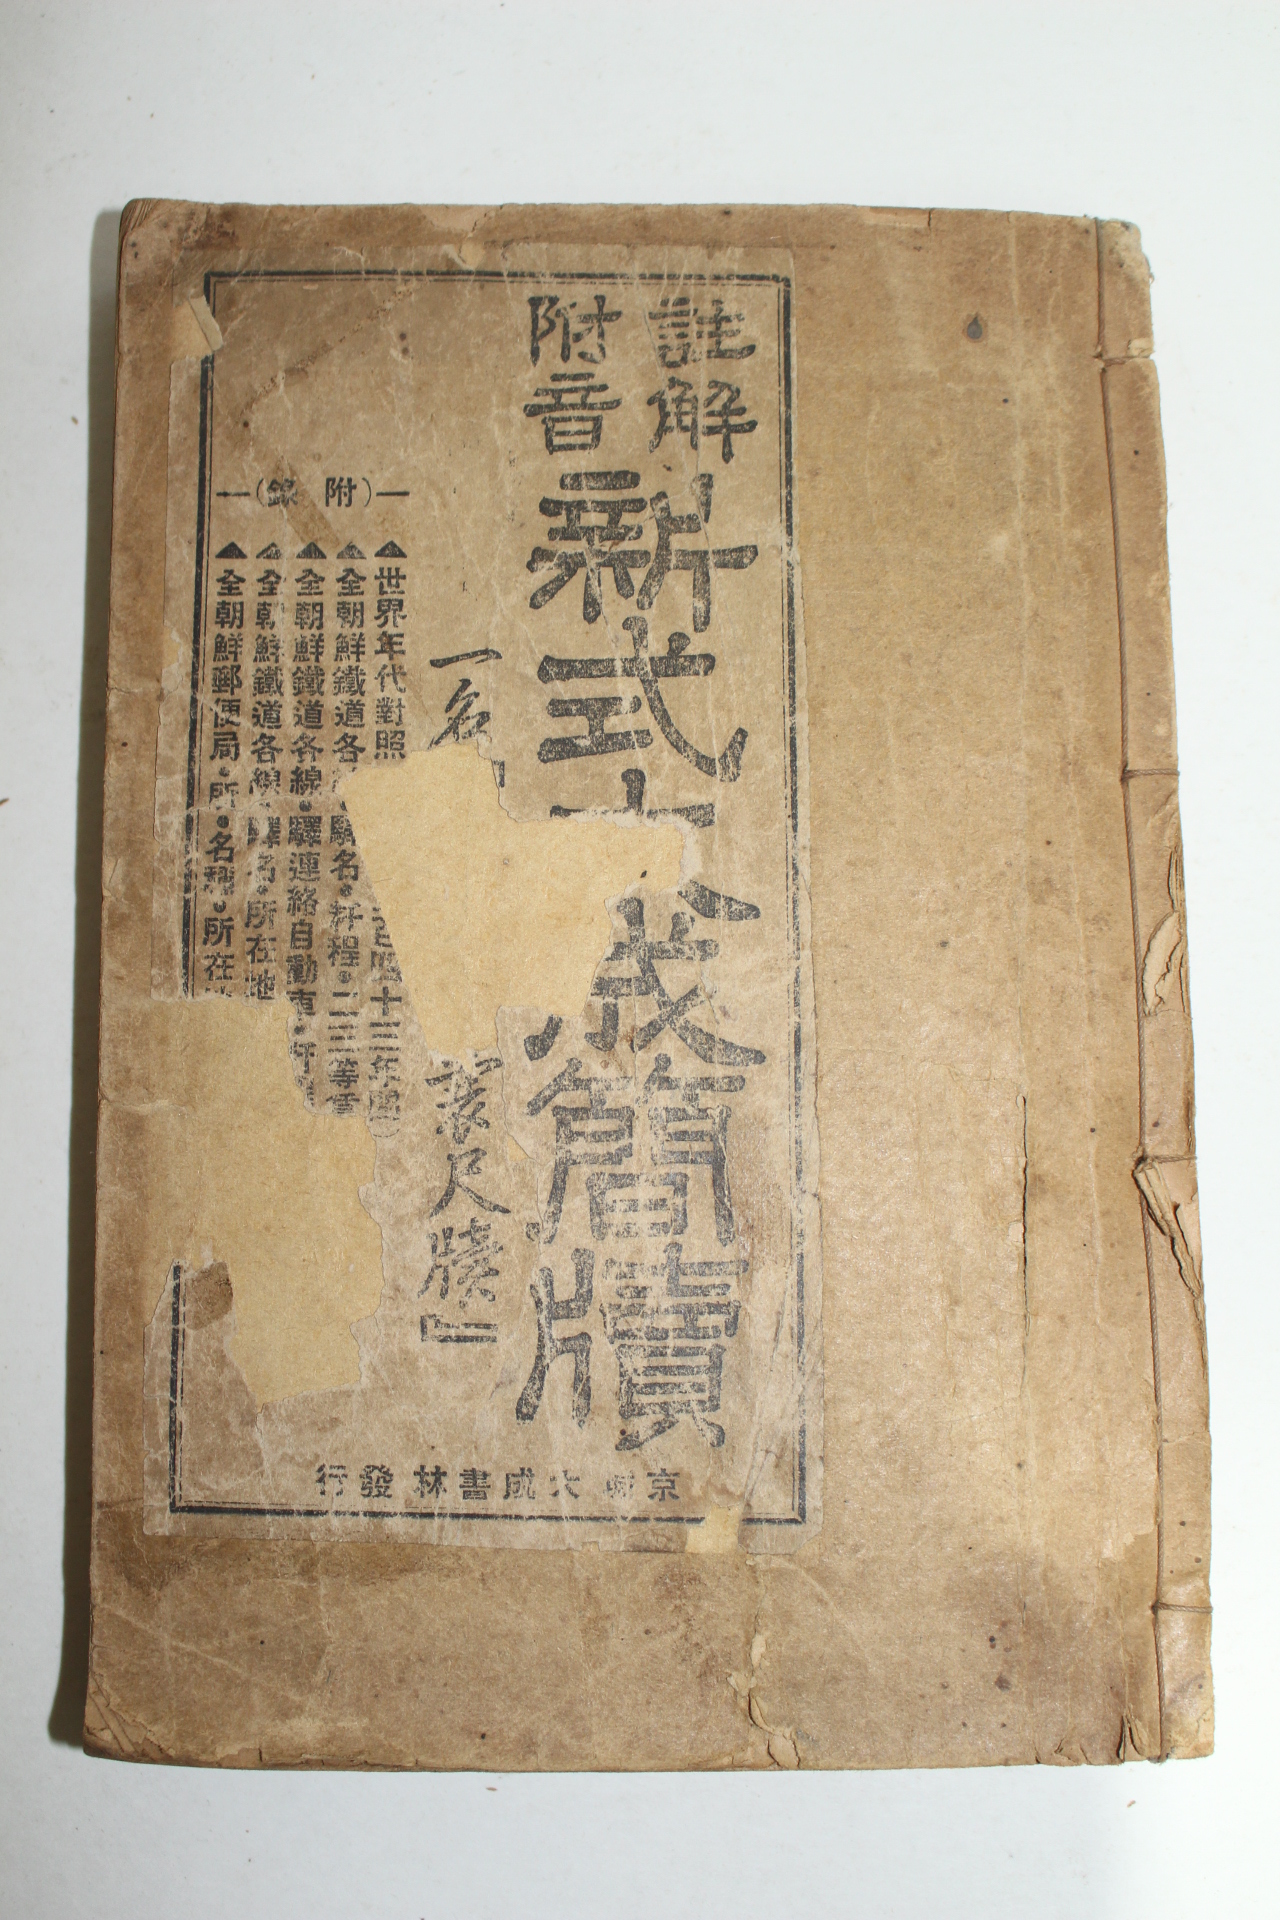 註解
附音
新式大成簡牘
一名
裳尺牘』
—(附錄)—
▲世界年代對照 百四十三年間)
▲全朝鮮鐵道各 驛名・粁程・二三等賃
▲全朝鮮鐵道各線・驛連絡自動車・粁
▲全朝鮮鐵道各線・驛名・所在地
▲全朝鮮郵便局・所・名稱・所在
京城 大成書林 發行